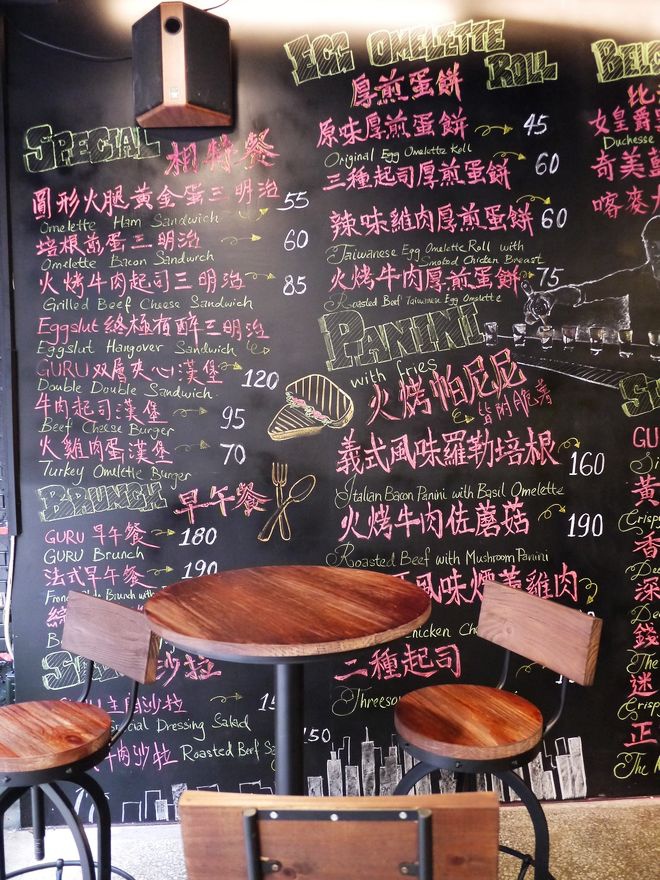 SPECIAL
圓形火腿黃金蛋三明治 55
Omelette Ham Sandwich
培根煎蛋三明治 60
Omelette Bacon Sandwich
火烤牛肉起司三明治 85
Grilled Beef Cheese Sandwich
Eggslut 終極宿醉三明治
Eggslut Hangover Sandwich
GURU 双層夾心漢堡 120
Double Double Sandwich
牛肉起司漢堡 95
Beef Cheese Burger
火雞肉蛋漢堡 70
Turkey Omelette Burger
BRUNCH 早午餐
GURU 早午餐 180
GURU Brunch
法式早午餐 190
Brunch with
沙拉
沙拉
Special Dressing Salad
牛肉沙拉 Roasted Beef
150
EGG OMELETTE ROLL
厚煎蛋餅
原味厚煎蛋餅 45
Original Egg Omelette Roll
三種起司厚煎蛋餅 60
辣味雞肉厚煎蛋餅 60
Taiwanese Egg Omelette Roll with
Smoked Chicken Breast
火烤牛肉厚煎蛋餅 75
Roasted Beef Taiwanese Egg Omelette
PANINI
with fries
火烤帕尼尼
皆附脆薯
義式風味羅勒培根 160
Italian Bacon Panini with Basil Omelette
火烤牛肉佐蘑菇 190
Roasted Beef with Mushroom Panini
風味煙燻雞肉
Chicken
二種起司
女皇爵
Duchesse
奇美
喀麥
GURU
黃
香
深
錢
The
迷
Crisp
正
The